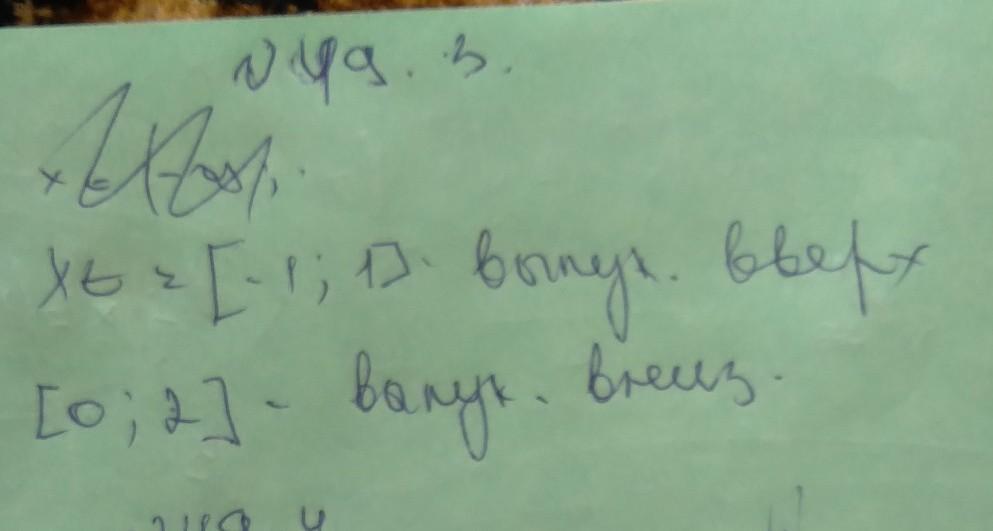 N 49. 3.
x ∈ [-1; 1]. выпук. вверх
[0; 2] - выпук. вниз.